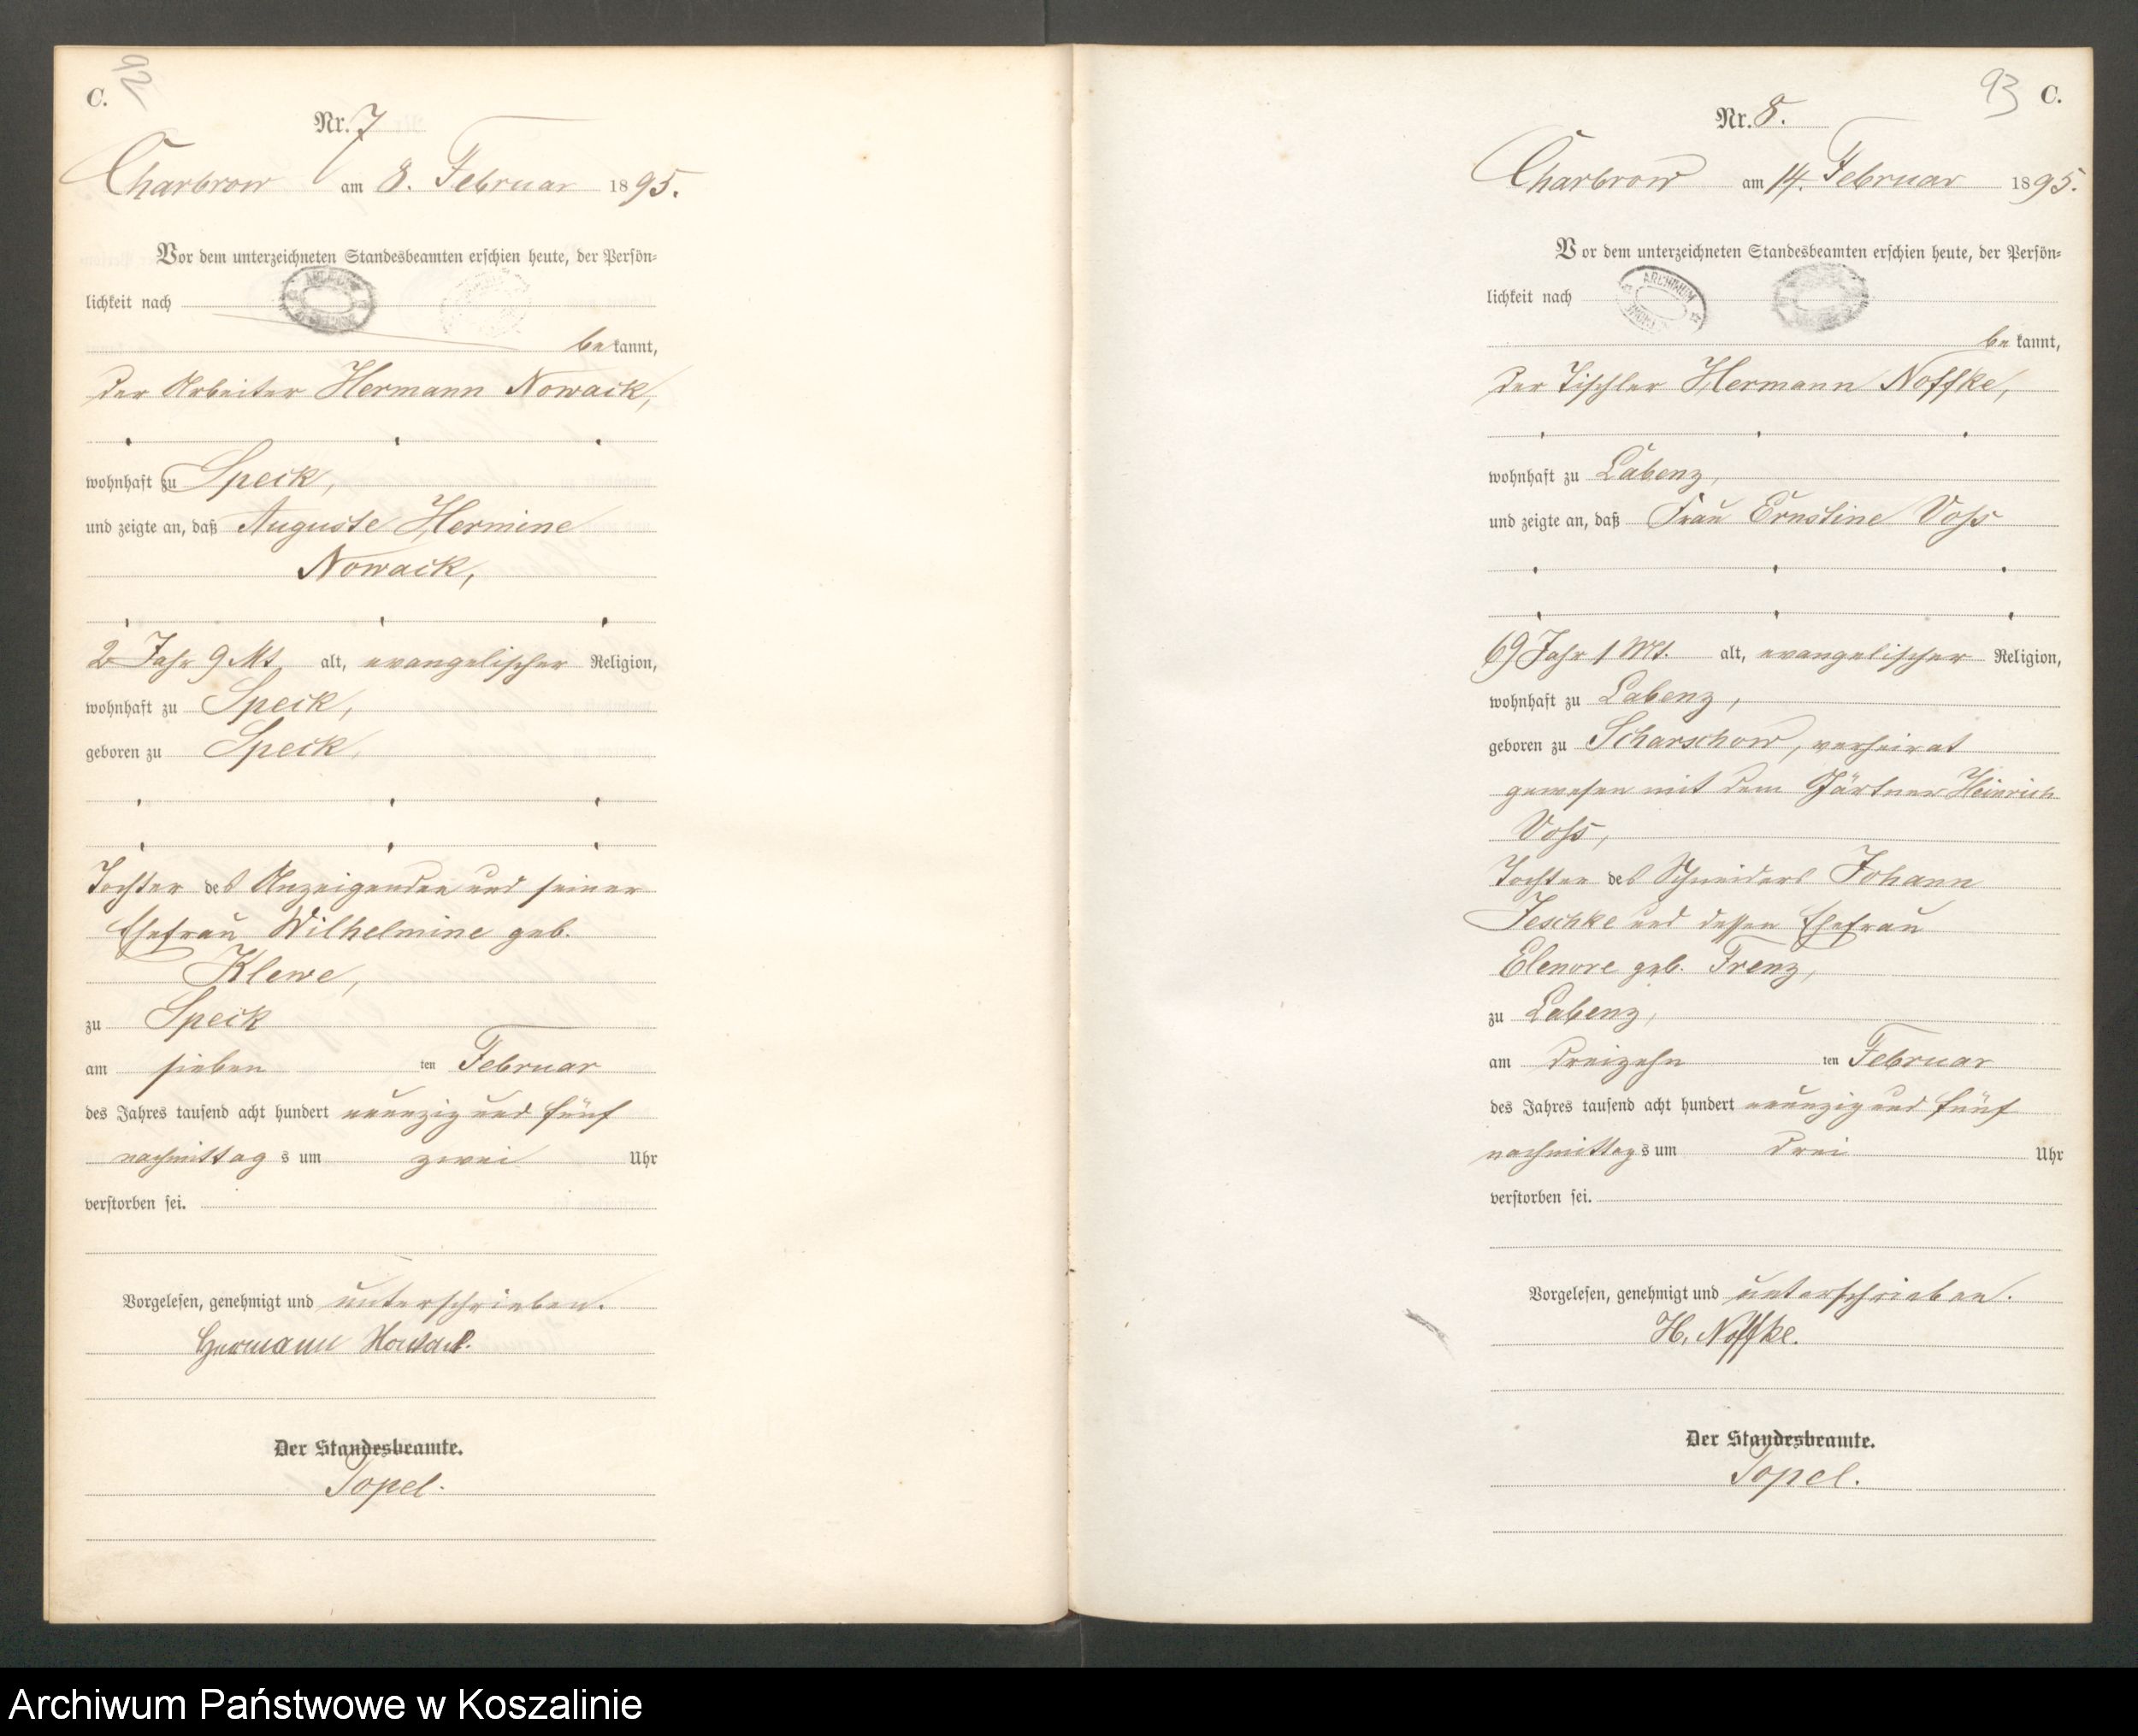 92
C.
Nr. 7
Charbrow am 8. Februar 1895.
Vor dem unterzeichneten Standesbeamten erschien heute, der Persön-
lichkeit nach
bekannt,
der Arbeiter Hermann Nowack,
wohnhaft zu Speck,
und zeigte an, daß Auguste Hermine
Nowack,
2 Jahr 9 Mt. alt, evangelischer Religion,
wohnhaft zu Speck,
geboren zu Speck,
Tochter des Anzeigenden und seiner
Ehefrau Wilhelmine geb.
Klewe,
zu Speck
am sieben ten Februar
des Jahres tausend acht hundert neunzig und fünf
nachmittags um zwei Uhr
verstorben sei.
Vorgelesen, genehmigt und unterschrieben.
Hermann Nowack.
Der Standesbeamte.
Topel.
93 C.
Nr. 8.
Charbrow am 14. Februar 1895.
Vor dem unterzeichneten Standesbeamten erschien heute, der Persön-
lichkeit nach
ARCHIWUM
bekannt,
der Tischler Hermann Noffke,
wohnhaft zu Labenz,
und zeigte an, daß Frau Ernstine Voss
69 Jahr 1 Mt. alt, evangelischer Religion,
wohnhaft zu Labenz,
geboren zu Scharschow, verheirat
gewesen mit dem Gärtner Heinrich
Voss,
Tochter des Schneiders Johann
Jeschke und dessen Ehefrau
Elenore geb. Frenz,
zu Labenz,
am dreizehn ten Februar
des Jahres tausend acht hundert neunzig und fünf
nachmittags um drei Uhr
verstorben sei.
Vorgelesen, genehmigt und unterschrieben.
H. Noffke.
Der Standesbeamte.
Topel.
Archiwum Państwowe w Koszalinie